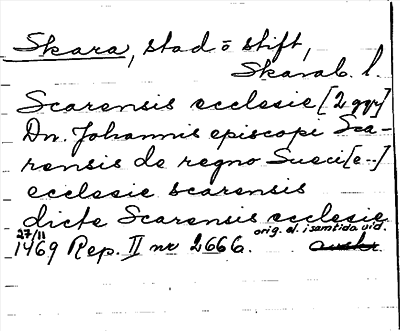 Skara, stad o stift,
Skarab. l.
Scarensis ecclesie [2 ggr]
Dn. Johannis episcopi Sca-
rensis de regno Sueci[e--]
ecclesie scarensis
dicte Scarensis ecclesie
27/11 orig. el. i samtida vid.
1469 Rep. II nr 2666.